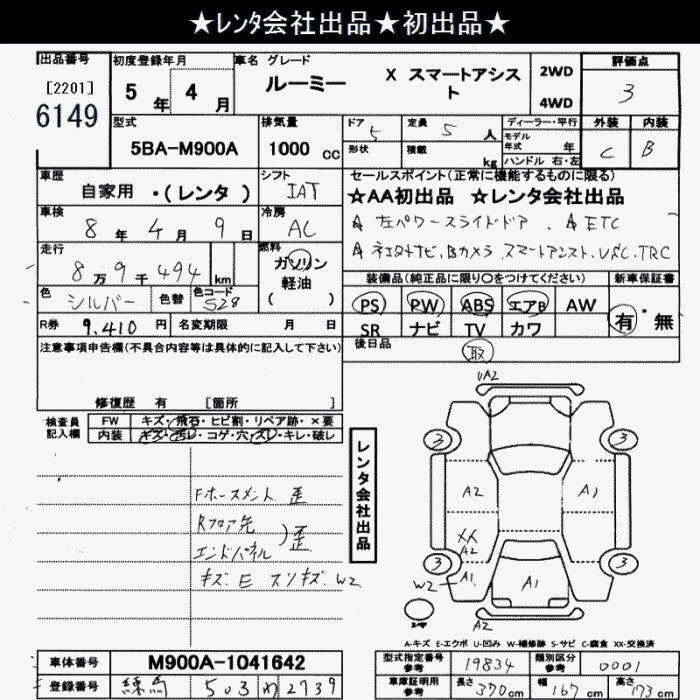 ★レンタ会社出品★初出品★
出品番号 初度登録年月 車名 グレード 評価点
[2201] 6149
5年 4月 ルーミー X スマートアシスト 2WD 4WD 3
型式 排気量 ドア 5 定員 5人 ディーラー・平行 外装 内装
5BA-M900A 1000cc 形状 積載 kg モデル年式 年 ハンドル 右・左 C B
車歴 シフト セールスポイント(正常に機能するものに限る)
自家用・(レンタ) IAT ☆AA初出品 ☆レンタ会社出品
車検 冷房 ☆左パワースライドドア. ☆ETC
8年 4月 9日 AC
走行 燃料 Bカメラ スマートアシスト. VSC. TRC
8万9千494km ガソリン 軽油 ( )
装備品(純正品に限り〇をつけてください) 新車保証書
色 シルバー 色替 色コード S28
PS PW ABS エアB AW 有・無
R券 9,410円 名変期限 月 日 SR ナビ TV カワ
注意事項申告欄(不具合内容等は具体的に記入して下さい) 後日品
取
修復歴 有 [箇所 ]
検査員記入欄 FW キズ・飛石・ヒビ割・リペア跡・×要
内装 キズ・汚レ・コゲ・穴・スレ・キレ・破レ
レンタ会社出品
UA2
3 3
A2 A1
Fホースメント 歪
Rフロア先
エンドパネル )歪
XX
A2
キズ. E スリキズ. W2
3 3
W2 A1 A1
A2
A-キズ E-エクボ U-凹み W-補修跡 S-サビ C-腐食 XX-交換済
車体番号 M900A-1041642 型式指定番号 参考 19834 類別区分 参考 0001
登録番号 練馬 503 わ 2739 車庫証明用 参考 長さ 370cm 幅 167cm 高さ 173cm